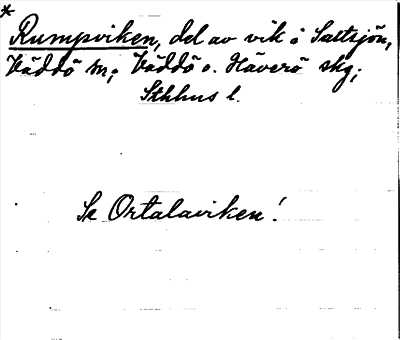 * Rumpviken, del av vik å Saltsjön,
Väddö sn; Väddö o. Häverö skg;
Sthhus l.
Se Ortalaviken!